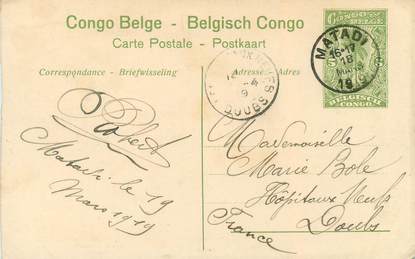 Congo Belge - Belgisch Congo
Carte Postale - Postkaart
Correspondance - Briefwisseling
Adresse - Adres
CONGO BELGE
5 5
BELGISCH CONGO
MATADI
16-17
18
19
DOUBS
Robert
Matadi le 19
Mars 1919
Mademoiselle
Marie Bole
Hôpitaux Neufs
Doubs
France